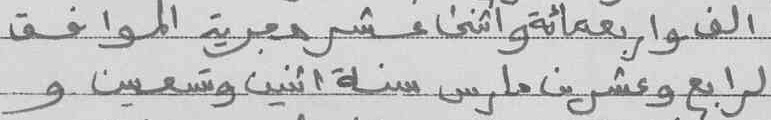 الف واربعمائة واثنى عشر هجرية الموافق
لرابع وعشرين مارس سنة اثنين وتسعين و